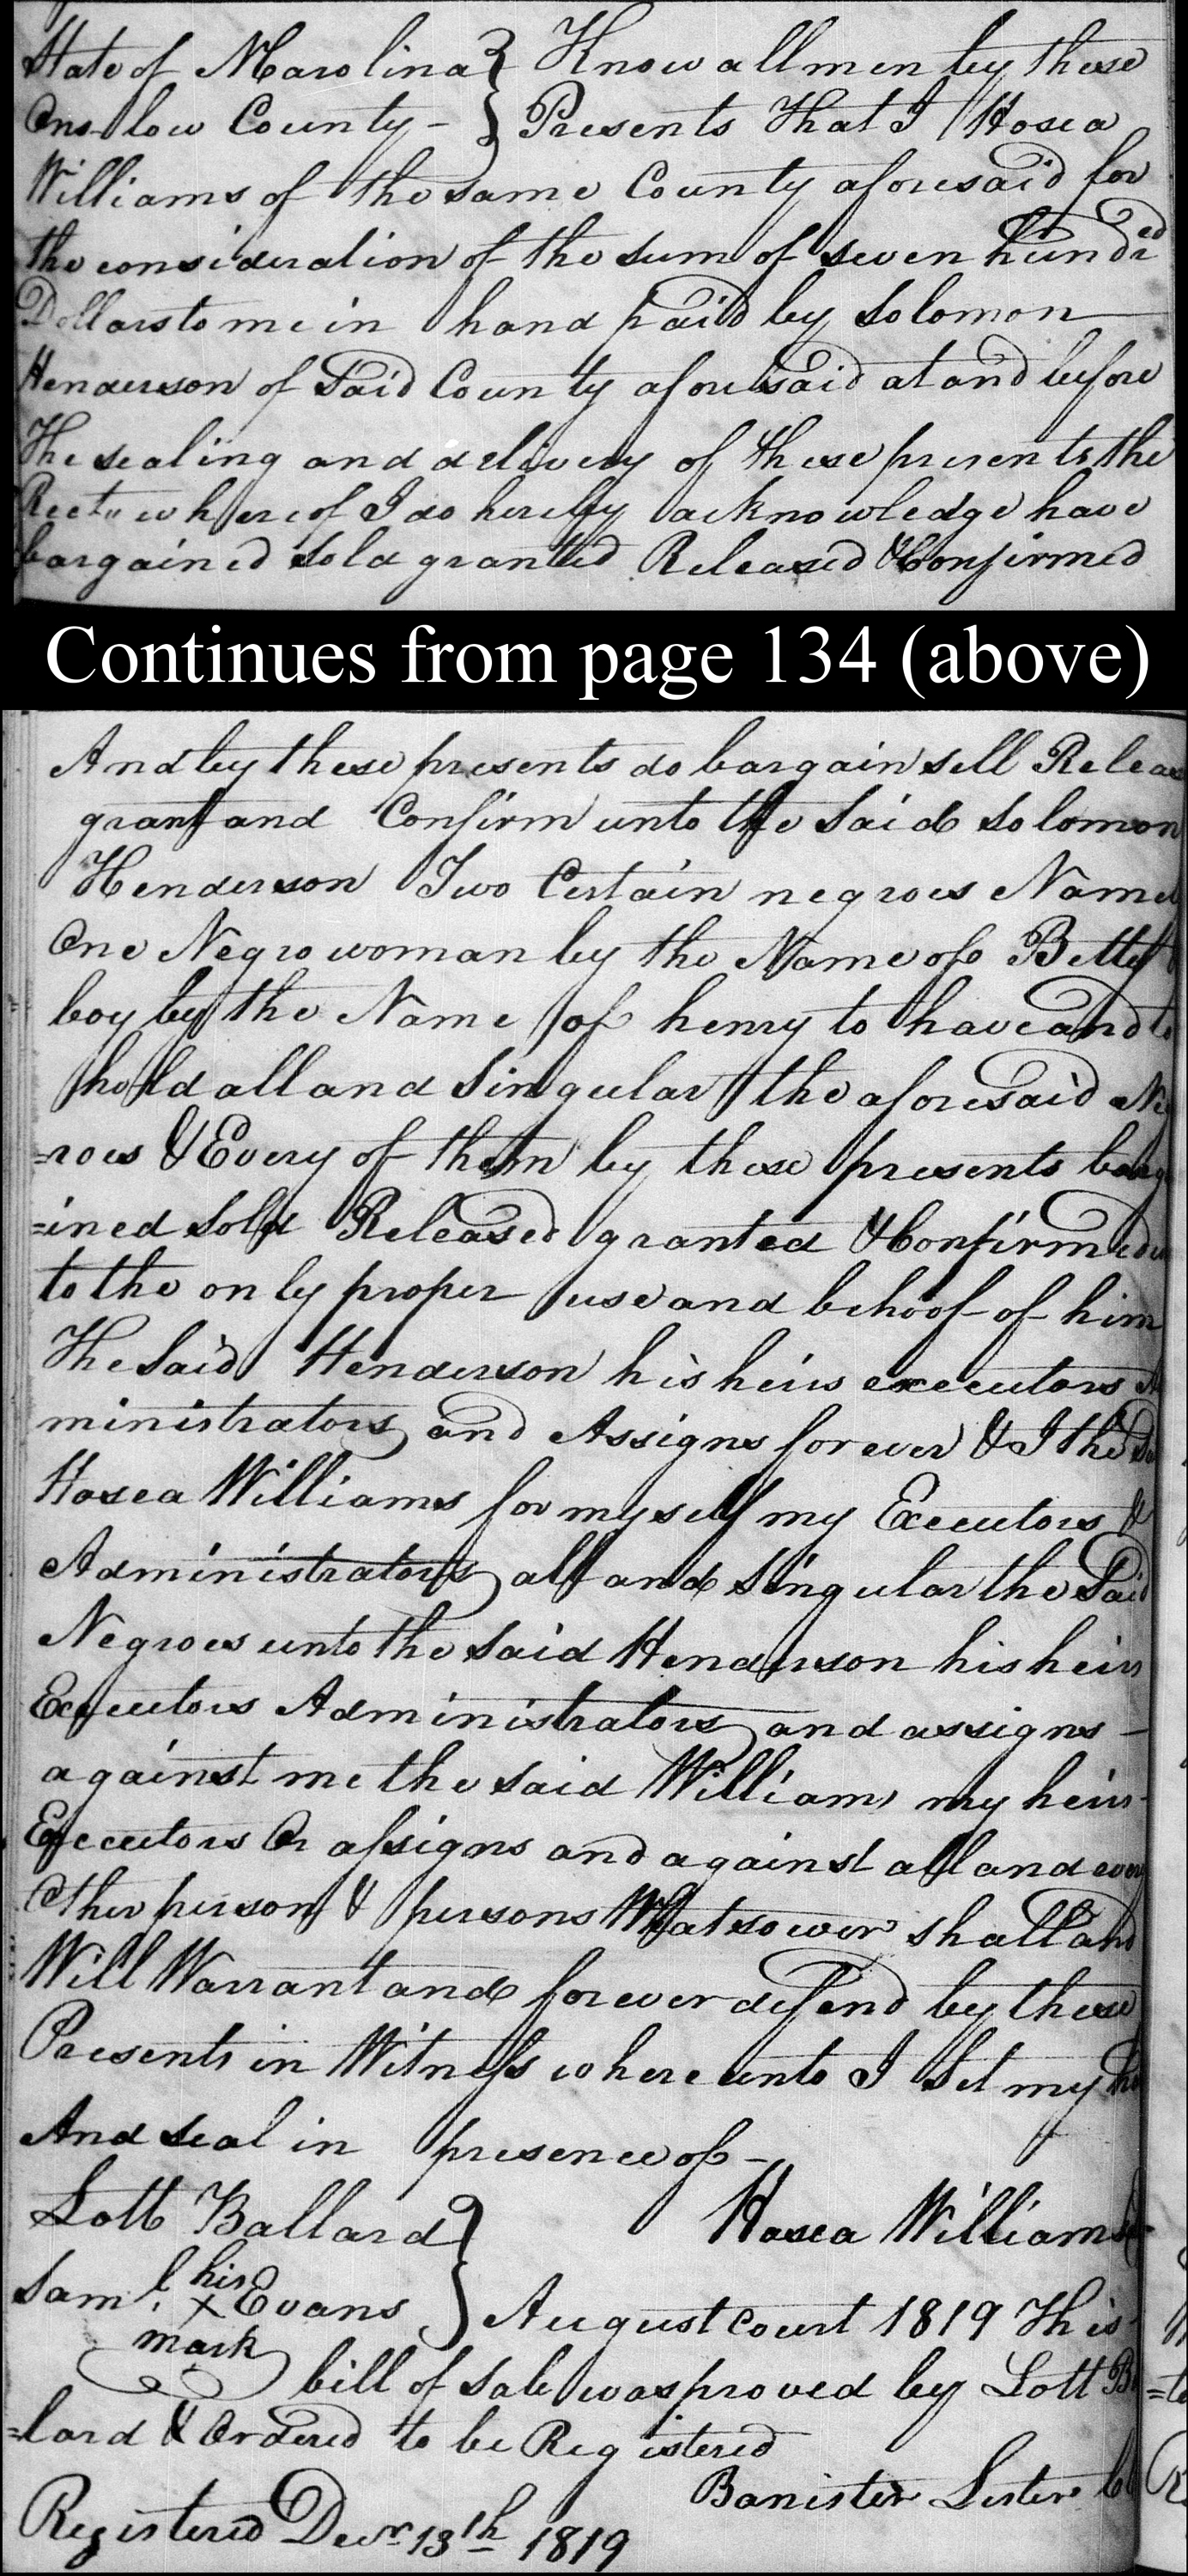 State of N Carolina } Know all men by these
Onslow County - } Presents That I Hosea
Williams of the same County aforesaid for
the consideration of the sum of seven hundred
Dollars to me in hand paid by Solomon
Henderson of Said County aforesaid at and before
The sealing and delivery of these presents the
Rect" whereof I do hereby acknowledge have
bargained sold granted Released & Confirmed
Continues from page 134 (above)
And by these presents do bargain sell Releas
grant and Confirm unto the Said Solomon
Henderson Two Certain negroes Named
One Negro woman by the Name of Betty
boy by the Name of henry to have and to
hold all and Singular the aforesaid Ne
=roes & Every of them by these presents barga
=ined sold Released granted & Confirmed
to the only proper use and behoof of him
The Said Henderson his heirs executors A
ministrators and Assigns forever & I the Sa
Hosea Williams for myself my Executors &
Administrators all and Singular the Said
Negroes unto the Said Henderson his heirs
Executors Administrators and assigns -
against me the said Williams my heirs
Executors Or assigns and against all and every
Other person & persons Whatsoever shall and
Will Warrant and forever defend by these
Presents in Witness where unto I Set my ha
And seal in presence of -
Lott Ballard } Hosea Williams
Saml. his x mark Evans } August court 1819 This
bill of Sale was proved by Lott B
=lard & Ordered to be Registered
Banister Lester Cl
Registered Decr 13th 1819